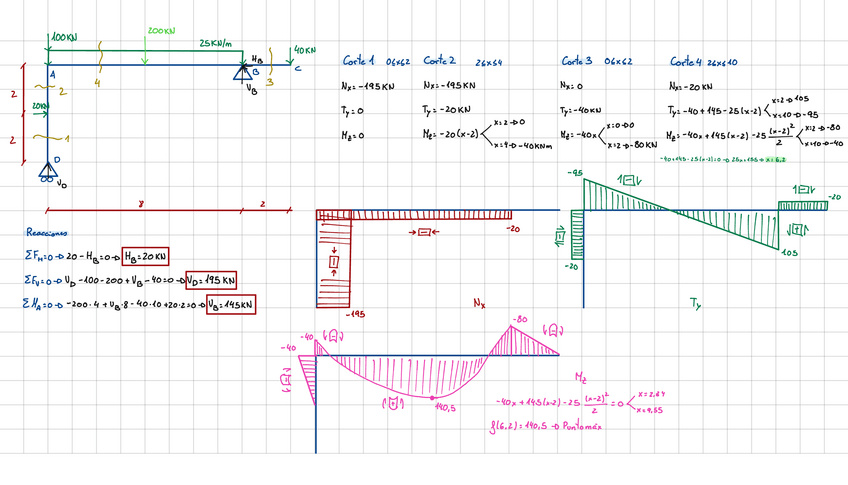 100KN
200KN
25KN/m
40KN
H_B
A
B
C
V_B
4
3
2
2
20KN
1
2
D
V_D
8
2
Corte 1 0≤x≤2
N_x=-195KN
T_y=0
M_z=0
Corte 2 2≤x≤4
N_x=-195KN
T_y=-20KN
M_z=-20(x-2)
x=2→0
x=4→-40KNm
Corte 3 0≤x≤2
N_x=0
T_y=-40KN
M_z=-40x
x=0→0
x=2→-80KN
Corte 4 2≤x≤10
N_x=-20KN
T_y=-40+145-25(x-2)
x=2→105
x=10→-95
M_z=-40x+145(x-2)-25 (x-2)²/2
x=2→-80
x=10→-40
-40+145-25(x-2)=0→25x=155→x=6,2
Reacciones
ΣF_H=0→20-H_B=0→H_B=20KN
ΣF_V=0→V_D-100-200+V_B-40=0→V_D=195KN
ΣM_A=0→-200·4+V_B·8-40·10+20·2=0→V_B=145KN
-20
-195
N_x
-95
-20
-20
105
T_y
-40
-40
-80
140,5
M_z
-40x+145(x-2)-25 (x-2)²/2=0
x=2,84
x=9,55
f(6,2)=140,5→Punto máx